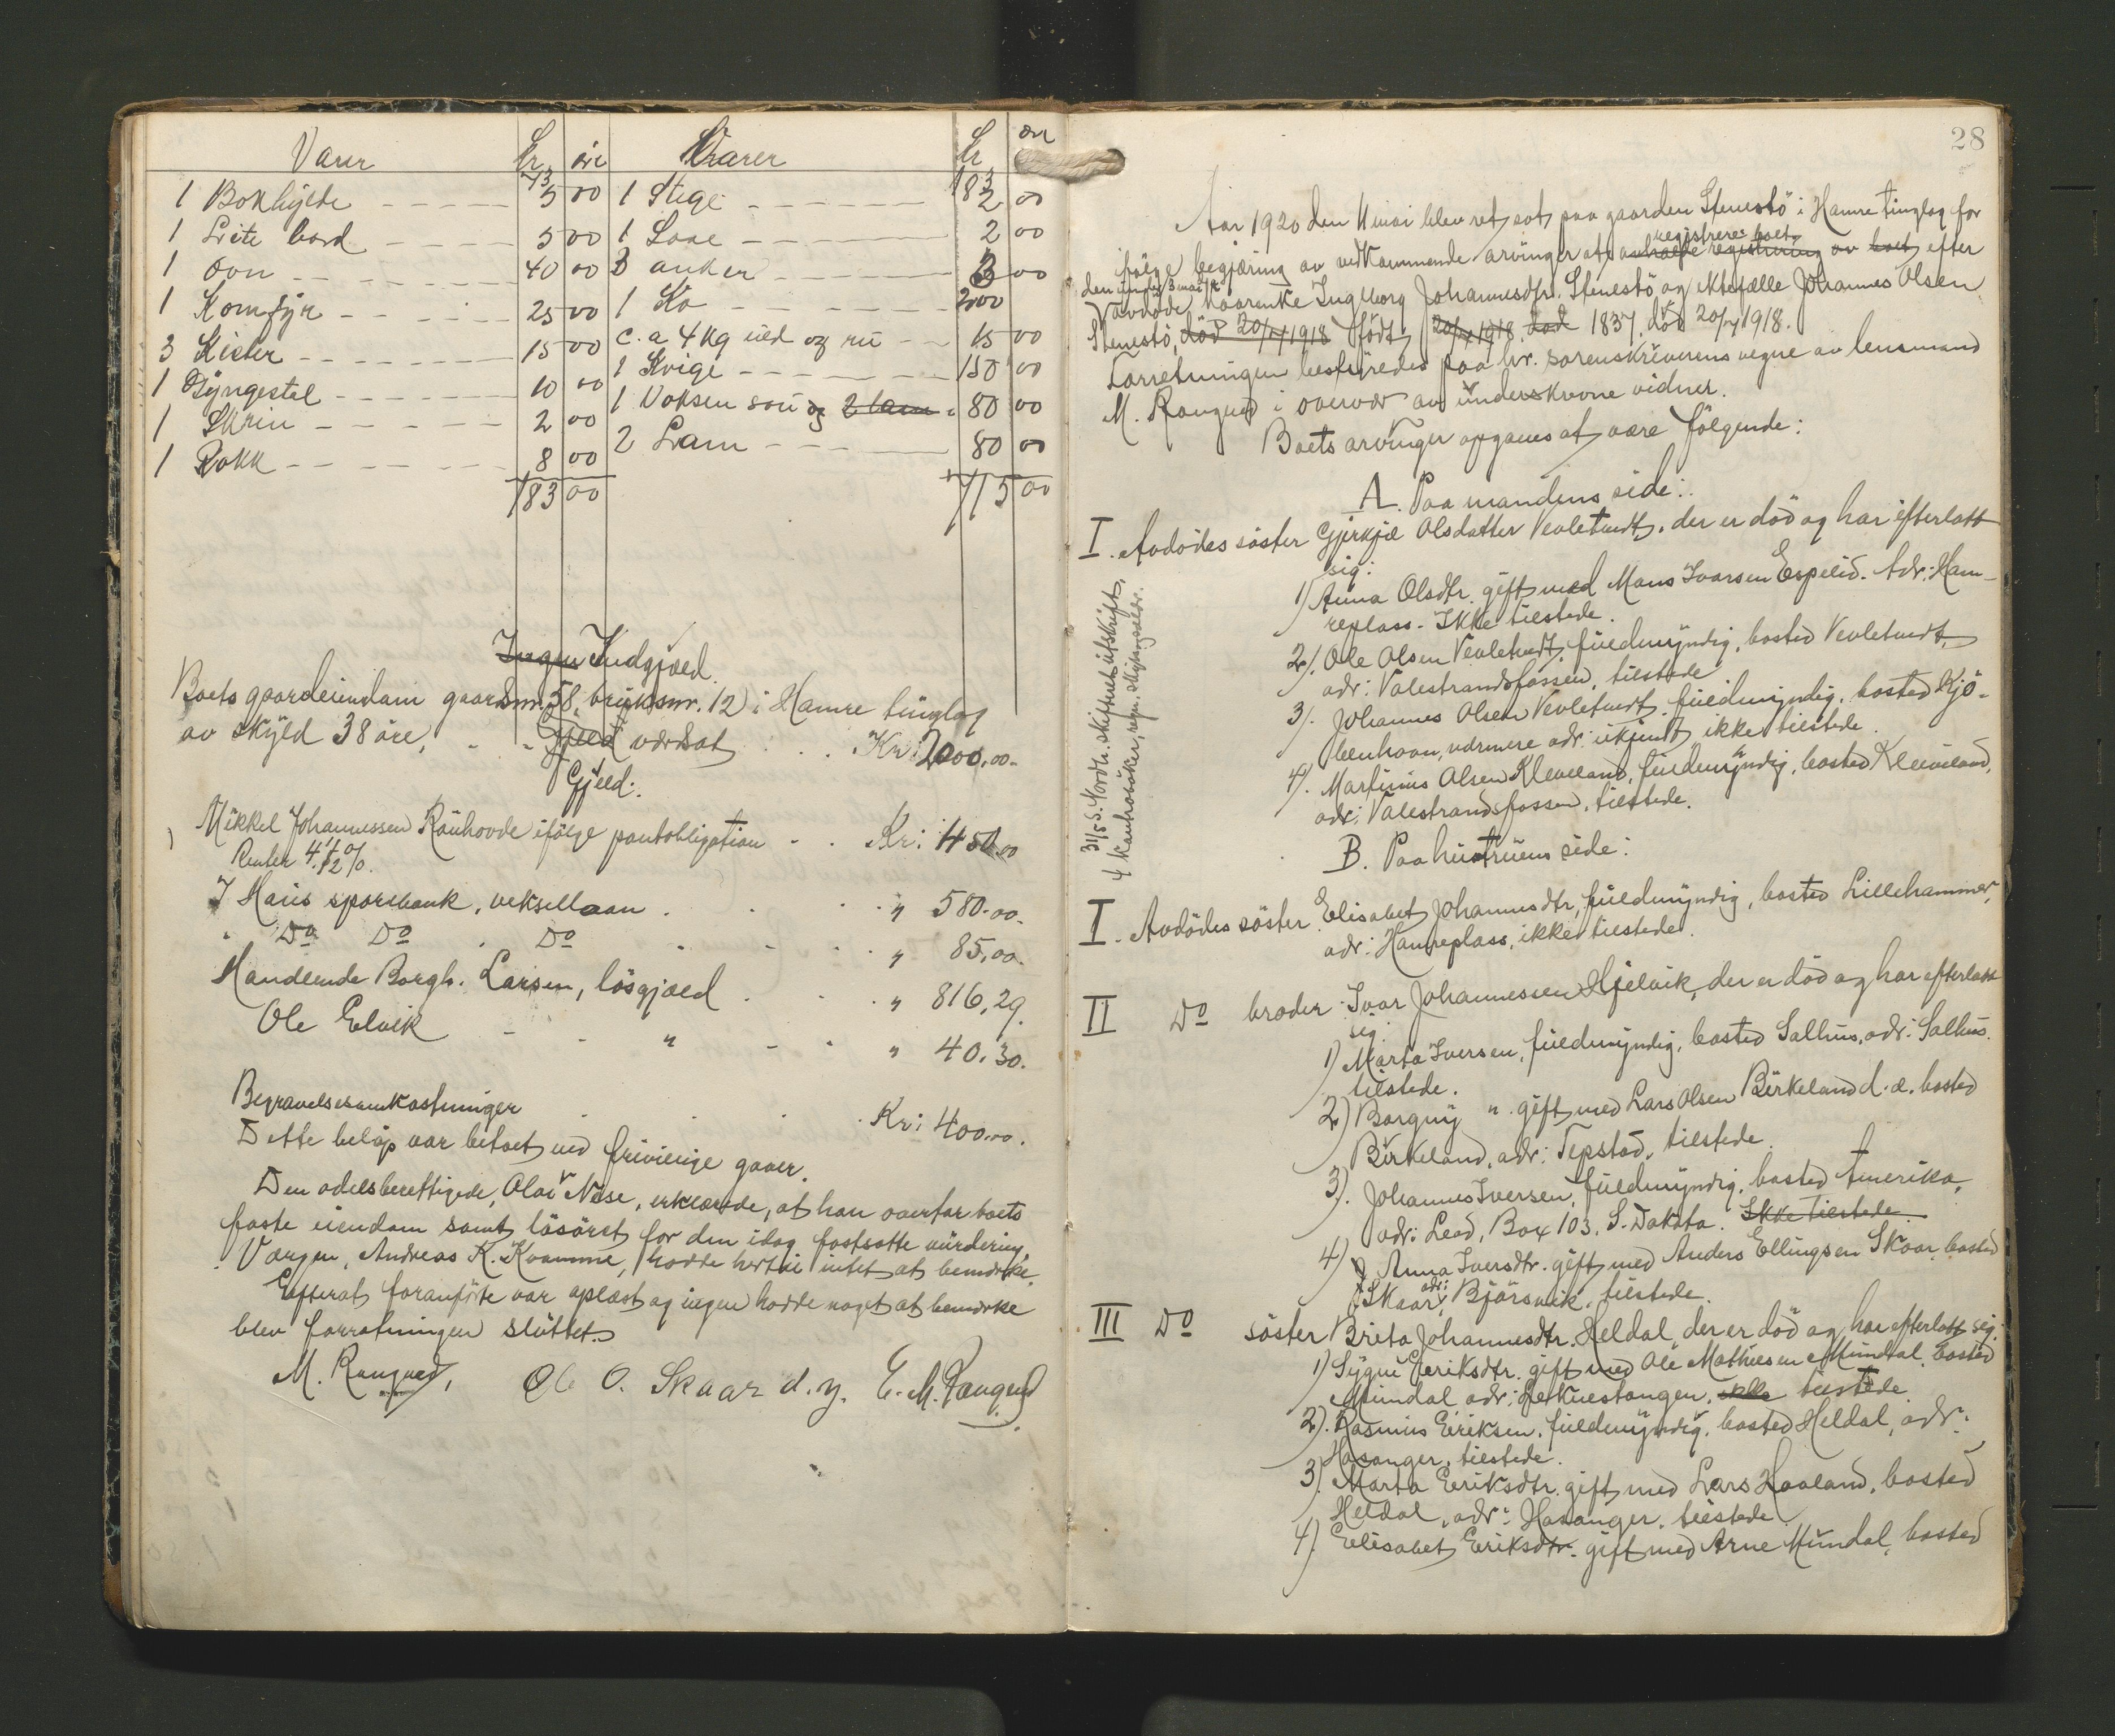 Varer Kr. øre Varer Kr. øre
73 183
1 Bokhylde 5 00
1 Lite bord 5 00
1 ovn 40 00
1 Komfyr 25 00
3 Kister 15 00
1 Gyngestol 10 00
1 Skrin 2 00
1 Rokk 8 00
183 00
1 Stige 2 00
1 Laae 2 00
3 anker 3 00
1 Ko 200
c. a 4 kg uld og ru 15 00
1 Kvige 150 00
1 Voksen sau og 2 lam 80 00
2 Lam 80 00
715 00
Ingen Indgjæld.
Boets gaardeiendom gaardsnr. 58, bruksnr. 12 i Hamre tinglag
av skyld 38 øre, værdsat Kr: 2000,00.
Gjæld:
Mikkel Johannessen Rauhovde ifølge pantobligation Kr: 450,00
Renter 4 1/2 %.
I Haus sparebank, veksellaan " 580.00.
" Do Do Do " 85,00.
Handlende Borgh. Larsen, løsgjæld " 816,29.
Ole Elvik " " 40,30.
Begravelsesomkostninger Kr: 400,00.
Dette beløp var betalt ved frivillige gaver.
Den odelsberettigede, Olai Nese, erklærede, at han overtar boets
faste eiendom samt løsøret for den idag fastsatte vurdering.
Værgen, Andreas K. Kvamme, hadde hertil intet at bemerke.
Efterat foranførte var oplæst og ingen hadde noget at bemerke
blev forretningen sluttet.
M. Rangned, Ole O. Skaar d.y. E. M. Rangned
28
Aar 1920 den 11 mai blev ret sat paa gaarden Stenestø i Hamre tinglag for
registrere boet
følge begjæring av vedkommende arvinger at avholde registrering av boet efter
den 3 mai
avdøde kaarenke Ingeborg Johannesdtr. Stenestø og ektefælle Johannes Olsen
Stenestø, død 20/4 1918 født 20/4 1918 død 1837, død 20/4 1918.
Forretningen bestyredes paa hr. sorenskriverens vegne av lensmand
M. Rangned i overvær av underskrevne vidner.
Boets arvinger opgaves at være følgende:
A. Paa mandens side:
I. Avdødes søster Gjerkje Olsdatter Veoletvedt, der er død og har efterlatt
sig:
1) Anna Olsdtr. gift med Mons Ivarsen Espelid. Adr: Ham-
replass. Ikke tilstede.
2). Ole Olsen Veoletvedt, fuldmyndig, bosted Veoletvedt,
adr: Valestrandsfossen, tilstede
3). Johannes Olsen Veoletvedt, fuldmyndig, bosted Kjø-
benhavn, nærmere adr: ukjendt, ikke tilstede.
4). Martinus Olsen Kleveland, fuldmyndig, bosted Kleiveland,
adr: Valestrandsfossen, tilstede.
31/5 S. Nordh. skifteret utskrift,
4 kaarhovsøker, regn. skiftegjælder.
B. Paa hustruens side:
I. Avdødes søster Elisabet Johannesdtr, fuldmyndig, bosted Lillehammer,
adr: Hamreplass, ikke tilstede.
II Do broder Ivar Johannessen Hjelvik, der er død og har efterlatt
sig:
1) Marta Iversen, fuldmyndig, bosted Salhus, adr: Salhus.
tilstede.
2) Borgny " gift med Lars Olsen Birkeland d. æ. bosted
Birkeland, adr: Tepstad, tilstede.
3). Johannes Iversen, fuldmyndig, bosted Amerika,
adr: Lead, Box 103. S. Dakota. Ikke tilstede.
4) Anna Iversdtr. gift med Anders Ellingsen Skaar, bosted
Skaar, adr: Bjørsvik, tilstede.
III Do søster Brita Johannesdtr. Heldal, der er død og har efterlatt sig:
1) Sygni Eriksdtr. gift med Ole Mathiesen Mundal, bosted
Mundal adr: Lerkuestangen, ikke tilstede.
2). Rasmus Eriksen, fuldmyndig, bosted Heldal, adr:
Hosanger, tilstede.
3). Marta Eriksdtr. gift med Lars Haaland, bosted
Heldal, adr: Hosanger, tilstede.
4). Elisabet Eriksdtr. gift med Arne Mundal, bosted